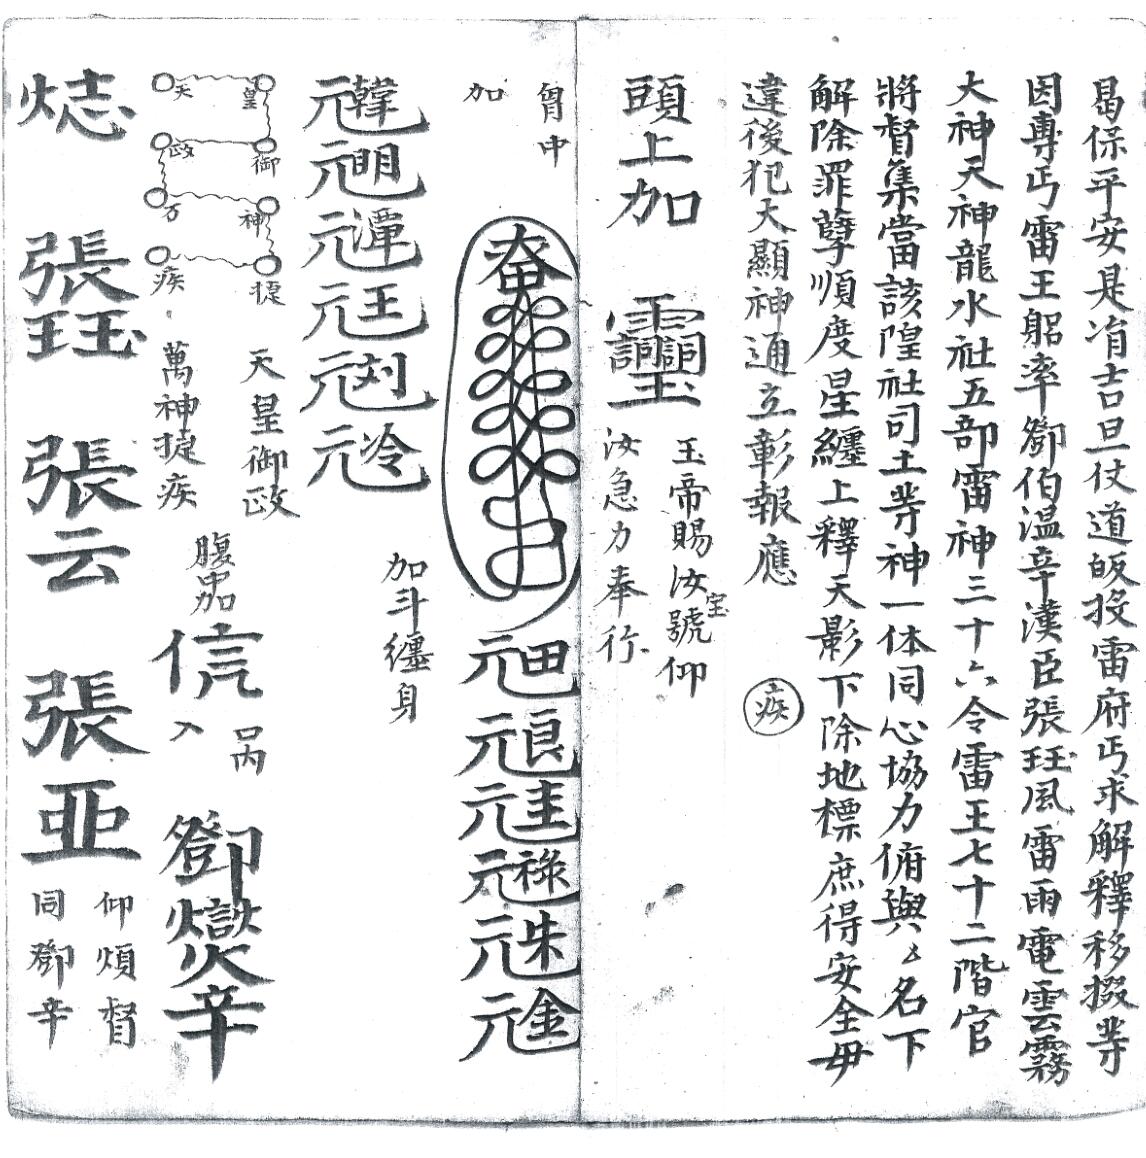 曷保平安是肻吉旦仗道皈投雷府丐求解釋移掇等
因專丐雷王躬率鄧伯温辛漢臣張珏風雷雨電雲霧
大神天神龍水社五部雷神三十六令雷王七十二階官
將督集當該隍社司土等神一体同心協力俯與厶名下
解除罪孽順度星纏上釋天影下除地標庶得安全毋
違後犯大顯神通立彰報應
疾
頭上加
玉帝賜汝號仰
宝
汝急力奉行
胷中
加
奋
元田
元良
元圭
元祿
元朱
元金
加斗纏身
元韓
元明
元潭
元王
元刈
元冷
皇 天
御 政
神 万
捷 疾
天皇御政
萬神捷疾
腹中加
信
入
呙
鄧燮辛
張珏
張云
張亜
仰煩督
同鄧辛